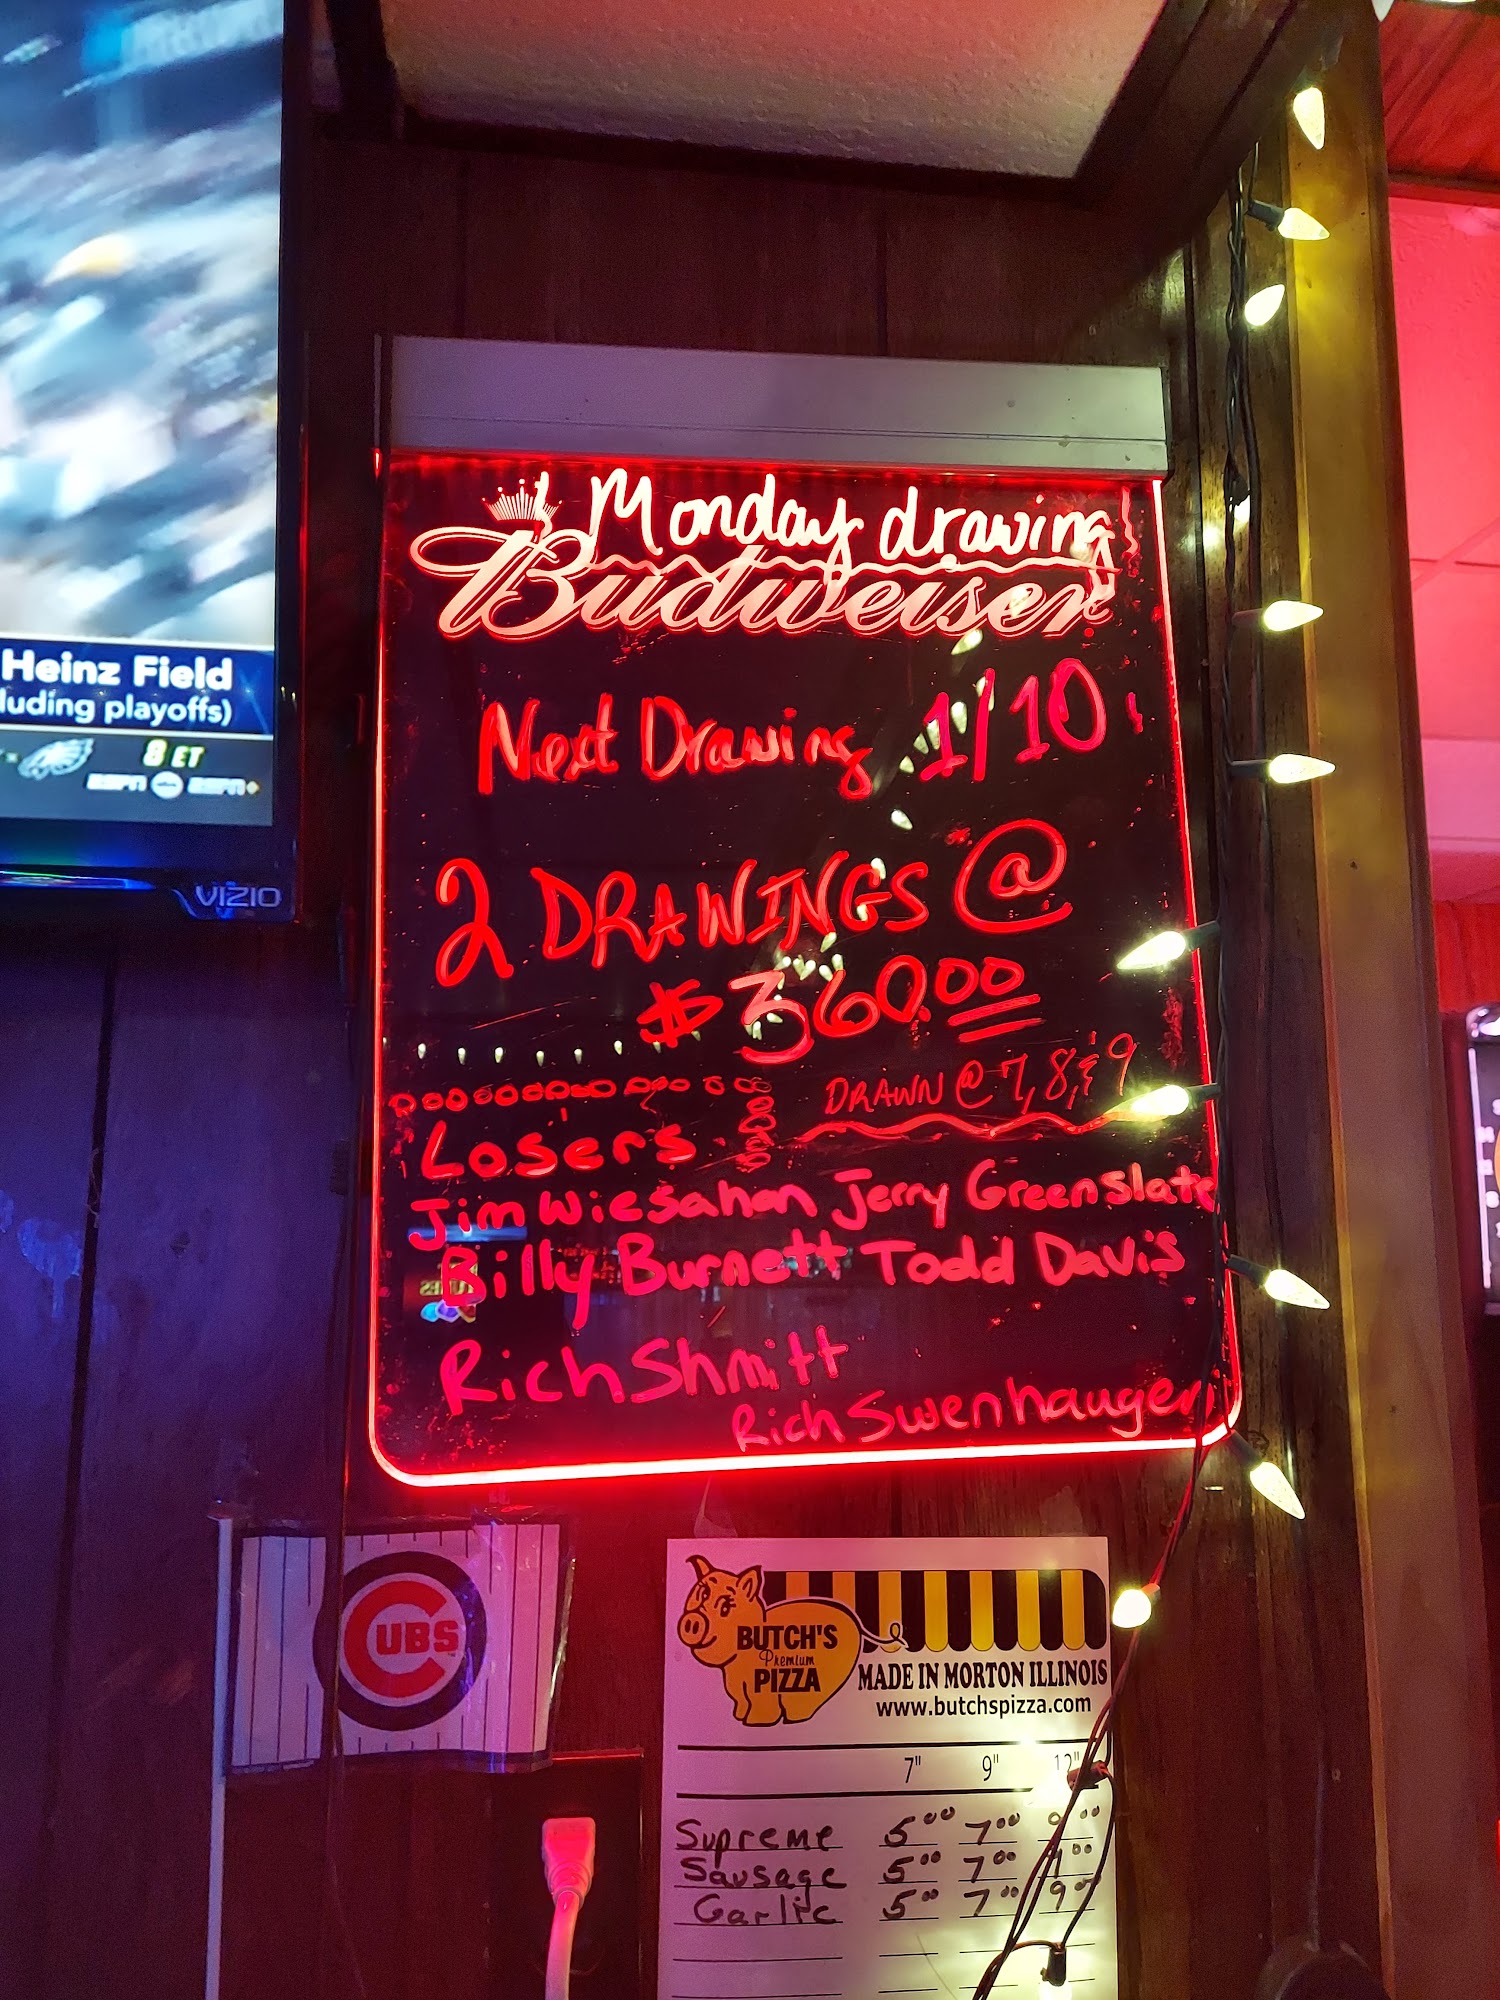 Heinz Field
luding playoffs)
8 ET
ESPN abc ESPN+
VIZIO
Monday drawing
Budweiser
Next Drawing 1/10
2 DRAWINGS @
$360.00
DRAWN @ 7, 8, & 9
Losers
Jim Wiesahan Jerry Greenslate
Billy Burnett Todd Davis
Rich Shmitt
Rich Swenhauger
CUBS
BUTCH'S
Premium
PIZZA
MADE IN MORTON ILLINOIS
www.butchspizza.com
7" 9" 12"
Supreme 5.00 7.00 9.00
Sausage 5.00 7.00 9.00
Garlic 5.00 7.00 9.00